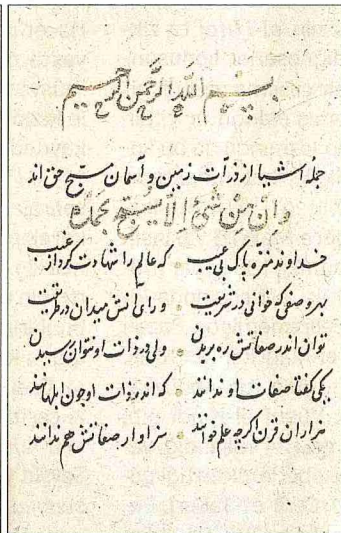 بسم الله الرحمن الرحیم
جمله اشیا از ذرات زمین و آسمان مسبح حق‌اند
وان من شیء الا یسبح بحمده
خداوند منزه پاک بی عیب که عالم را شهادت کرد از غیب
بهر وصفی که خوانی در شریعت ورای آنش میدان در طریقت
توان اندر صفاتش ره بریدن ولی در ذات او نتوان رسیدن
یکی گفتا صفات او ندانند که اندر ذات او چون ابلهانند
هزاران قرن اگر چه علم خوانند سزاوار صفاتش هم ندانند